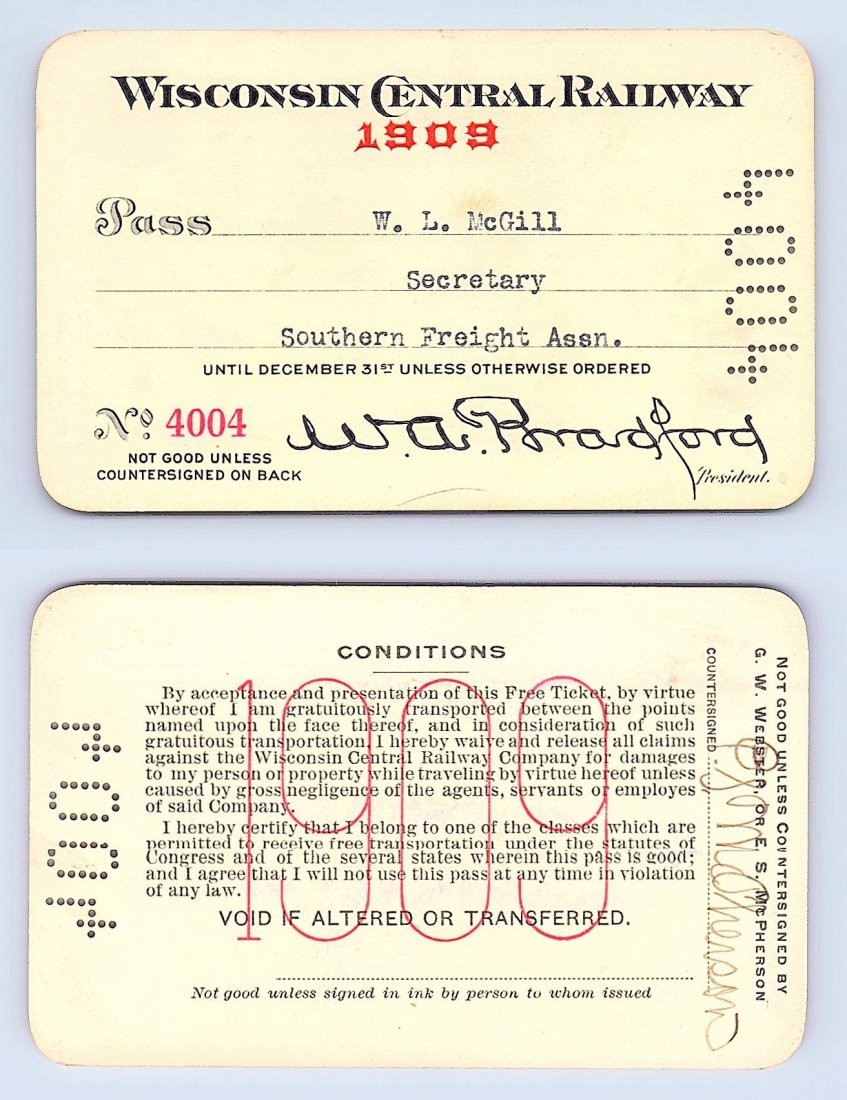 WISCONSIN CENTRAL RAILWAY
1909
Pass W. L. McGill
Secretary
Southern Freight Assn.
UNTIL DECEMBER 31ST UNLESS OTHERWISE ORDERED
No. 4004
W. A. Bradford
President.
NOT GOOD UNLESS
COUNTERSIGNED ON BACK
4004
CONDITIONS
By acceptance and presentation of this Free Ticket, by virtue
whereof I am gratuitously transported between the points
named upon the face thereof, and in consideration of such
gratuitous transportation, I hereby waive and release all claims
against the Wisconsin Central Railway Company for damages
to my person or property while traveling by virtue hereof unless
caused by gross negligence of the agents, servants or employes
of said Company.
I hereby certify that I belong to one of the classes which are
permitted to receive free transportation under the statutes of
Congress and of the several states wherein this pass is good;
and I agree that I will not use this pass at any time in violation
of any law.
VOID IF ALTERED OR TRANSFERRED.
1909
Not good unless signed in ink by person to whom issued
4004
NOT GOOD UNLESS COUNTERSIGNED BY
G. W. WEBSTER, OR E. S. McPHERSON
COUNTERSIGNED
E. S. McPherson